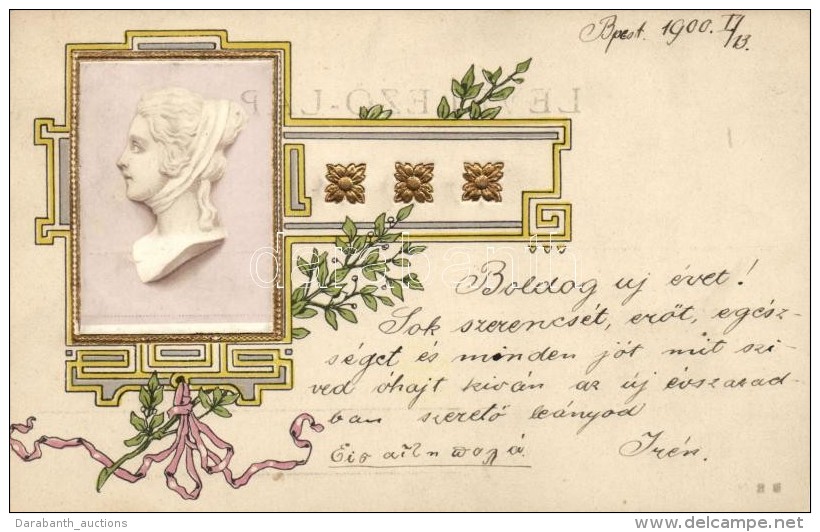 Bpest. 1900. I/13.
LEVELEZŐ-LAP
darabanth
Boldog uj évet!
Sok szerencsét, erőt, egész-
séget és minden jót mit szi-
ved óhajt kiván az új évszázad-
ban szerető leányod
Irén.
Darabanth_auctions
delcampe.net